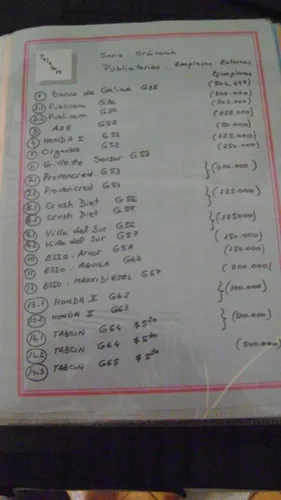 Telecom
Serie Ordinaria
Publicitarias. Empresas Externas
Ejemplares
1 Banco de Galicia G35 (504,647)
2.1 Publicom G36 (600.000)
2.2 Publicom G50 (302.000)
3 AXE G52 (225.000)
4 HONDA I G52 (50.000)
5 Organon G52 (225.000)
(250.000)
6 Gillette Sensor G53
7.1 Provencred G53 } (200.000)
7.2 Provencred G54
8.1 Crush Diet G56 } (125.000)
8.2 Crush Diet G57
9.1 Villa del Sur G56 } (125.000)
9.2 Villa del Sur G57 (150.000)
10 ESSO: Arcor G5A (150.000)
11 ESSO: AGUILA G63 (200.000)
12 ESSO: MAXXIDIESEL G67
13-1 HONDA II G62 } (100.000)
13-2 HONDA II G63
14.1 TABCIN G64 $5 } (500.000)
14.2 TABCIN G64 $5
14.3 TABCIN G65 $5 (500.000)